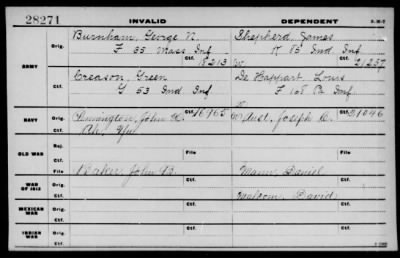 28271 INVALID DEPENDENT 3-317
ARMY
Orig. Burnham, George N. Shepherd, James
F 35 Mass Inf K 85 Ind Inf
Ctf. Ctf. 18213 Ctf. 21237
Creason, Green De Happart, Louis
G 53 Ind Inf F 108 Pa Inf
NAVY
Orig. John Ctf. 16965 Joseph Ctf. 21046
Ctf.
OLD WAR
Rej.
Ctf. File File
WAR OF 1812
Orig. Barker, John B. Mann, Daniel
Ctf. Malcom, David
MEXICAN WAR
Orig.
Ctf.
INDIAN WAR
Orig.
Ctf.